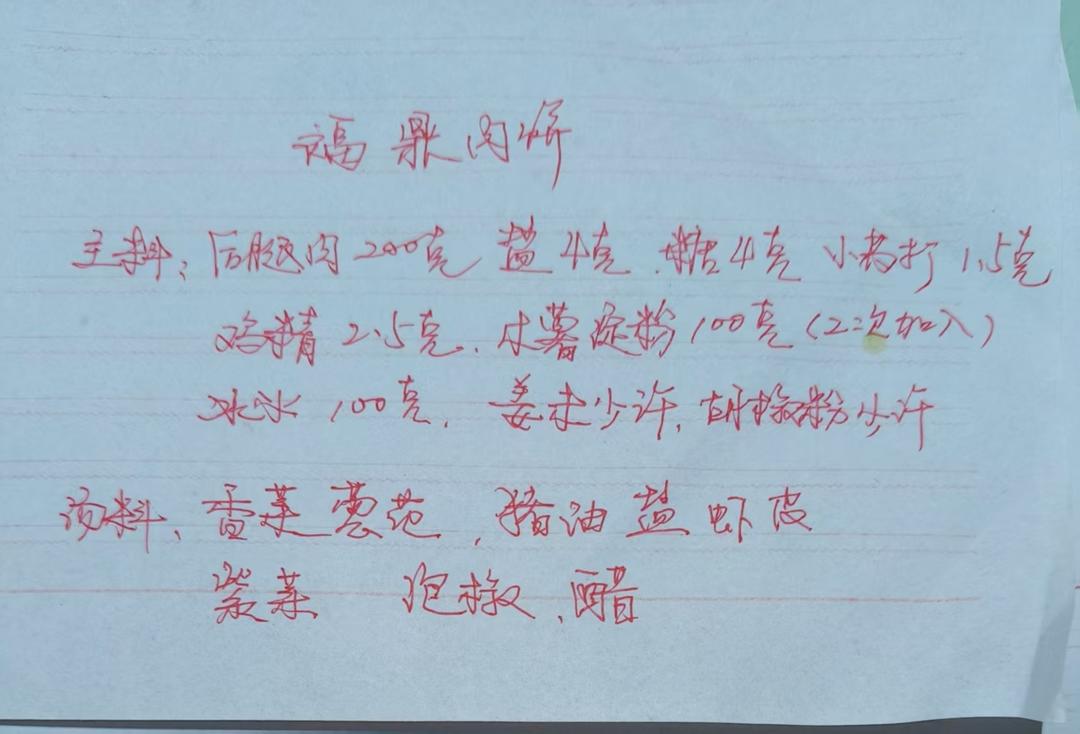 福鼎肉饼
主料: 后腿肉200克 盐4克、糖4克 小苏打1.5克
鸡精2.5克、木薯淀粉100克(2次加入)
冰水100克、姜末少许、胡椒粉少许
汤料、香菜葱花、猪油盐虾皮
紫菜 泡椒、醋